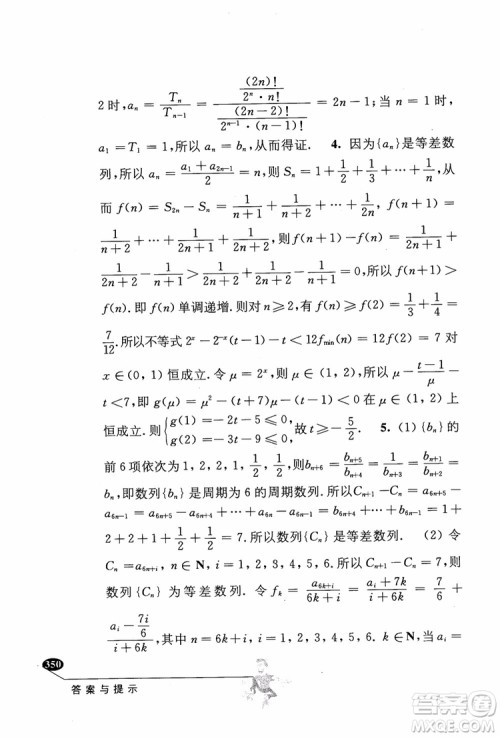 2 时, aₙ = Tₙ/Tₙ₋₁ = ((2n)!/(2ⁿ · n!))/((2n-2)!/(2ⁿ⁻¹ · (n-1)!)) = 2n-1; 当 n = 1 时,
a₁ = T₁ = 1, 所以 aₙ = bₙ, 从而得证. 4. 因为{aₙ}是等差数
列, 所以 aₙ = (a₁+a₂ₙ₋₁)/2 = n, 则 Sₙ = 1 + 1/2 + 1/3 + ⋯ + 1/n, 从
而 f(n) = S₂ₙ - Sₙ = 1/(n+1) + 1/(n+2) + ⋯ + 1/(2n), f(n+1) =
1/(n+2) + ⋯ + 1/(2n) + 1/(2n+1) + 1/(2n+2), 则 f(n+1) - f(n) =
1/(2n+2) + 1/(2n+1) - 1/(n+1) > 1/(2n+2) + 1/(2n+2) - 1/(n+1) = 0, 所以 f(n+1) >
f(n). 即 f(n) 单调递增. 对 n ≥ 2, 有 f(n) ≥ f(2) = 1/3 + 1/4 =
7/12. 所以不等式 2ˣ - 2⁻ˣ(t-1) - t < 12fₘᵢₙ(t) = 2 = 7 对
x ∈ (0, 1) 恒成立. 令 μ = 2ˣ, 则对于 μ ∈ (1, 2), μ - (t-1)/μ
- t < 7, 即 g(μ) = μ² - (t+7)μ - (t-1) < 0 对 μ ∈ (1, 2)
恒成立. 则 { g(1) = -2t - 5 ≤ 0, g(2) = -3t - 9 ≤ 0, 所以 t ≥ -5/2. 5. (1) {bₙ} 的
前 6 项依次为 1, 2, 2, 1, 1/2, 1/2 则 bₙ₊₆ = bₙ₊₅/bₙ₊₄ = 1/bₙ₊₃ = bₙ.
即数列{bₙ}是周期为 6 的周期数列. 所以 Cₙ₊₁ - Cₙ = a₆ₙ₊₅ -
a₆ₙ₋₁ = 1 + 2 + 2 + 1 + 1/2 + 1/2 = 7. 所以数列{Cₙ}是等差数列. (2) 令
Cₙ = a₆ₙ₊ᵢ, n ∈ N, i = 1, 2, 3, 4, 5, 6. 所以 Cₙ₊₁ - Cₙ = 7, 则
数列 {Cₙ} 是等差数列. 令 fₖ = a₆ₖ₊ᵢ/(6k+i) = (aᵢ+7k)/(6k+i) = 7/6 +
(aᵢ - 7i/6)/(6k+i), 其中 k ∈ N, i = 1, 2, 3, 4, 5, 6. 当 aᵢ =
350
答案与提示
作业帮